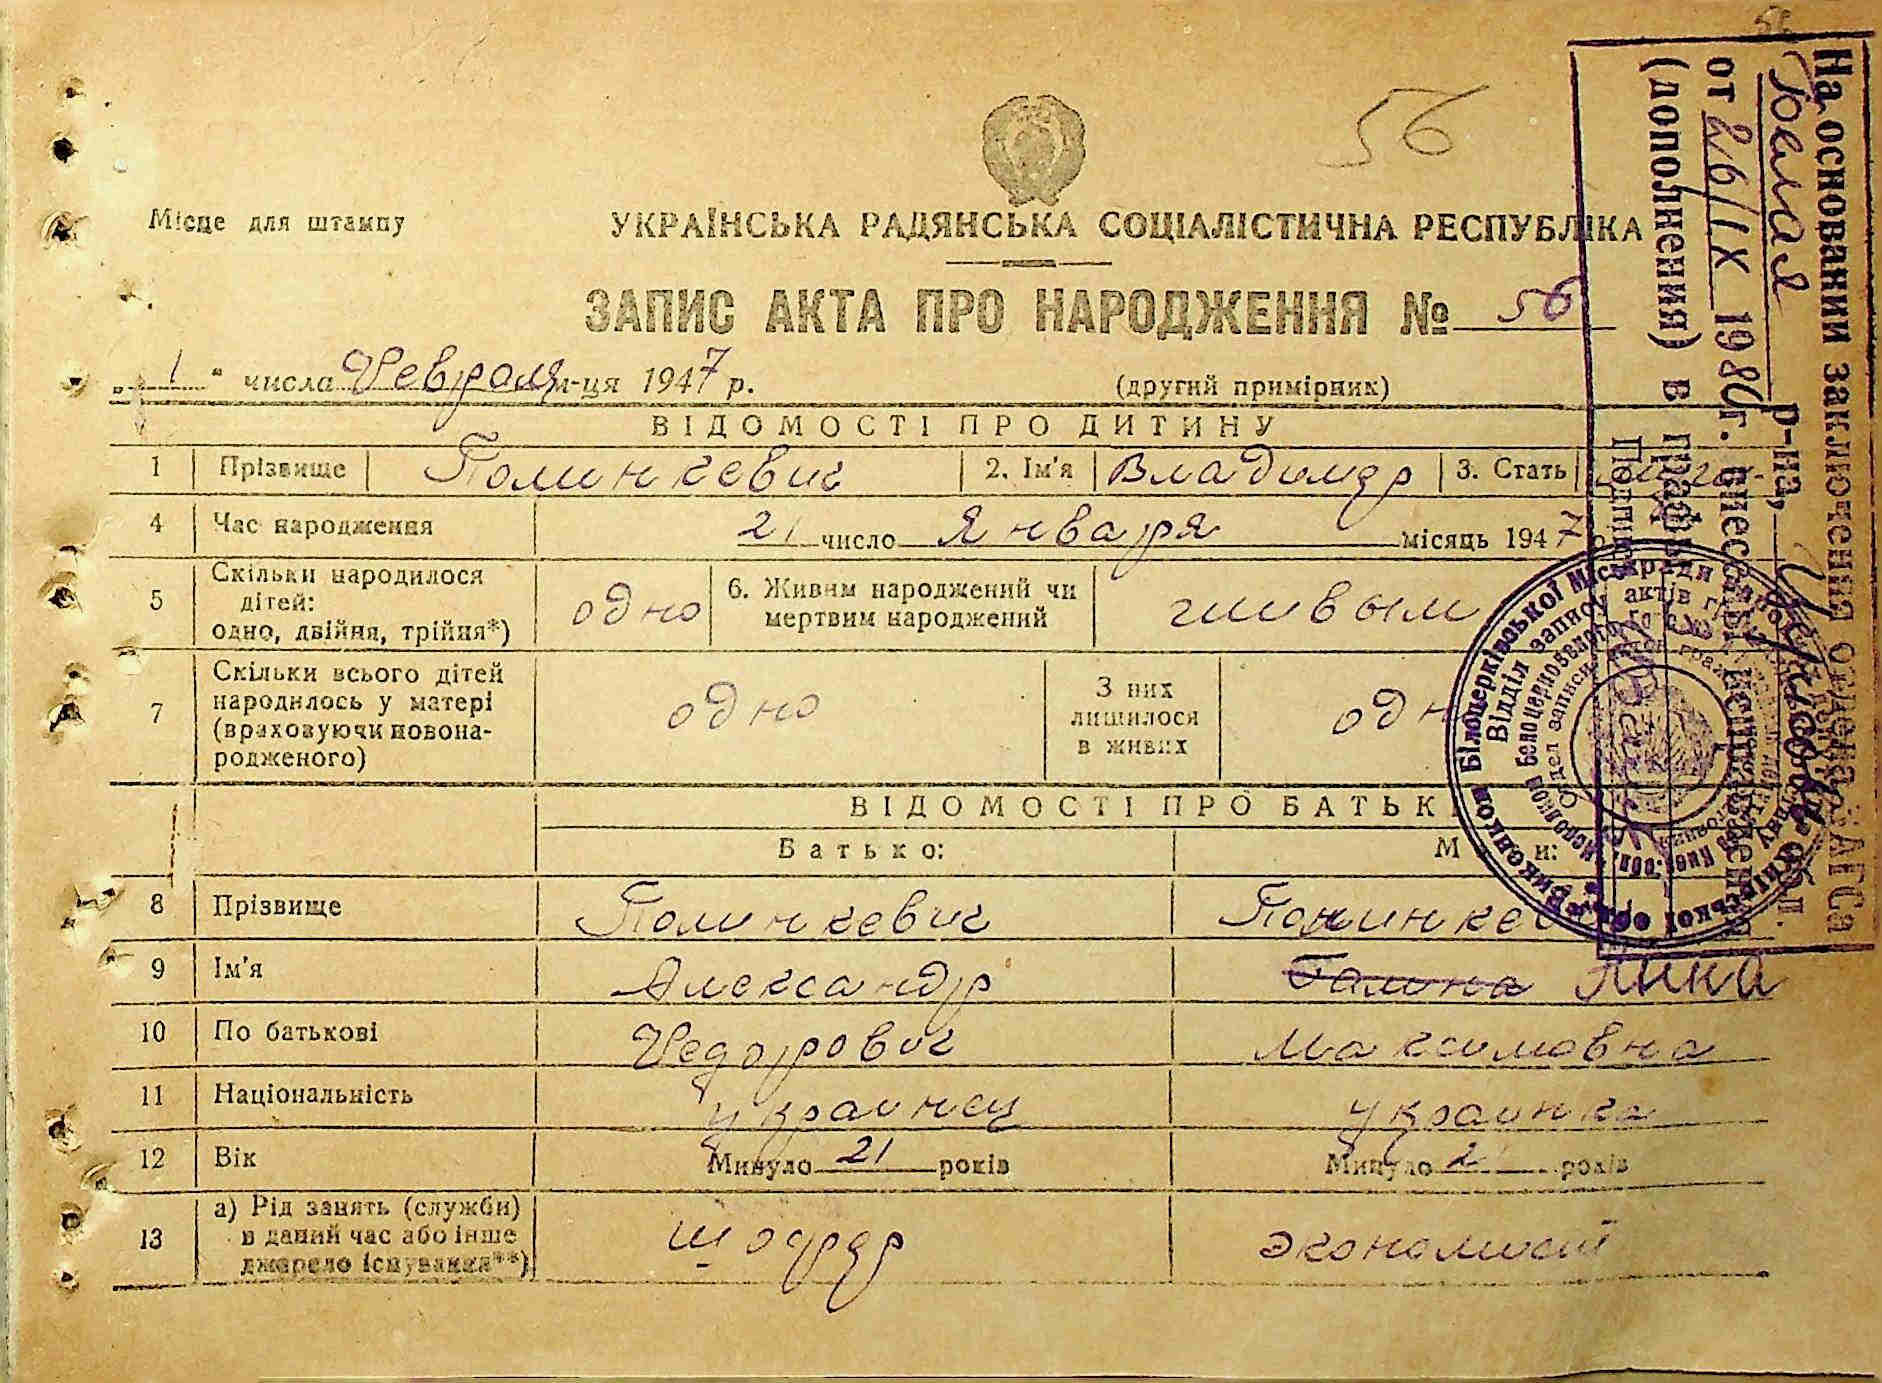 56
Місце для штампу
УКРАЇНСЬКА РАДЯНСЬКА СОЦІАЛІСТИЧНА РЕСПУБЛІКА
ЗАПИС АКТА ПРО НАРОДЖЕННЯ № 56
„ 1 “ числа Февраля м-ця 1947 р. (другий примірник)
ВІДОМОСТІ ПРО ДИТИНУ
1 Прізвище Полинкевич 2. Ім'я Владимир 3. Стать
4 Час народження 21 число Января місяць 1947
5 Скільки народилося дітей: одно, двійня, трійня*) одно 6. Живим народжений чи мертвим народжений живым
7 Скільки всього дітей народилось у матері (враховуючи новонародженого) одно З них лишилося в живих одн
ВІДОМОСТІ ПРО БАТЬК
Батько: М и:
8 Прізвище Полинкевич
9 Ім'я Александр Галина Нина
10 По батькові Федорович Максимовна
11 Національність украинец украинка
12 Вік Минуло 21 років Минуло 2 років
13 а) Рід занять (служби) в даний час або інше джерело існування**) шофер экономист
На основании заключения отдела ЗАГСа
р-на, обл.
от 26/IX 1980г. внесены исправления
(дополнения) в графы
Подпись
Виконком Білоцерківської міськради Київської обл.
Відділ запису актів